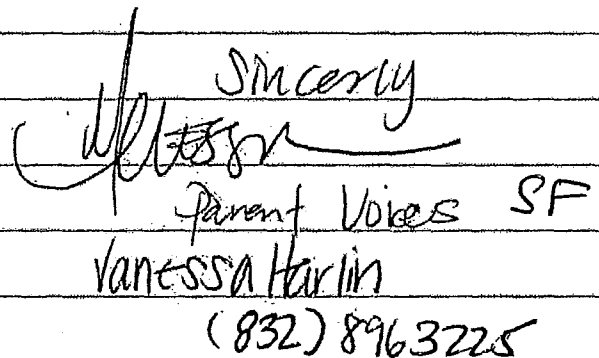 Sincerly
Parent Voices SF
Vanessa Harlin
(832) 8963225